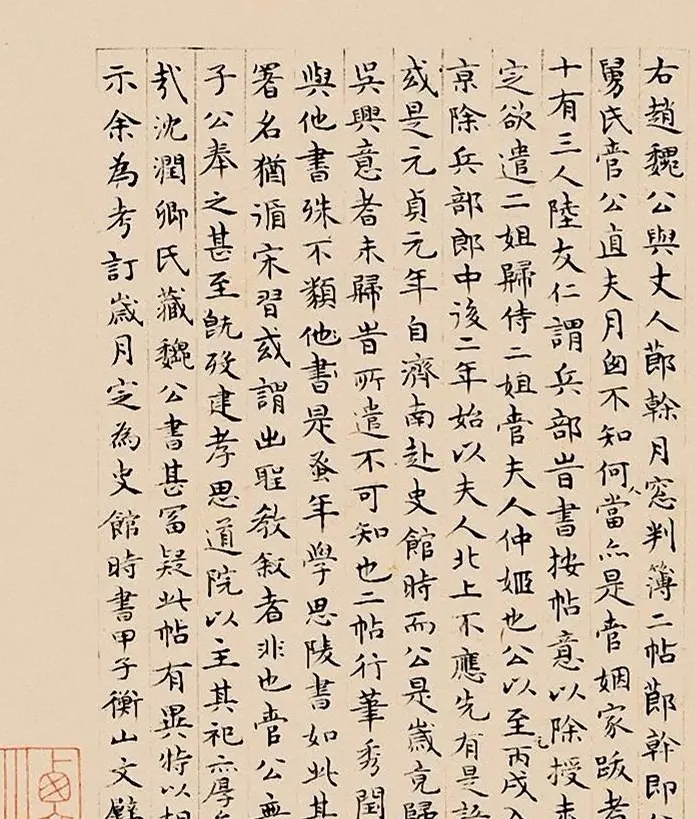 右趙魏公與丈人莭榦月窓判簿二帖莭幹即公
舅氏管公直夫月囱不知何人當亦是管姻家跋者
十有三人陸友仁謂兵部旹書按帖意以除授未
定欲遣二姐歸侍二姐管夫人仲姬也公以至元丙戌入
京除兵部郎中後二年始以夫人北上不應先有是語
或是元貞元年自濟南赴史館時而公是歲竟歸
吳興意者未歸旹所遣不可知也二帖行筆秀閏
與他書殊不類他書是蚤年學思陵書如此其
署名猶循宋習或謂出聖教敘者非也管公無
子公奉之甚至既歿建孝思道院以主其祀亦厚矣
哉沈潤卿氏藏魏公書甚富疑此帖有異特以相
示余為考訂歲月定為史館時書甲子衡山文璧